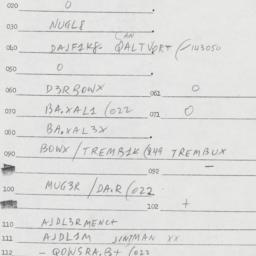 020 0
030 NUGL8
CAN
040 DAJF1K8- QALTVQR+ (-143050
050 0
060 D3RBOWX 061 0
070 BA.XAL1 (022 071 0
080 BA.XAL3X
090 BOWX / TREMB1K (849 TREMBUX
092 -
100 MUG3R / DA.R (022
102 +
110 AJDL3RMENC+
111 AJDL1M JINTMAN XX
112 - QOWSRA,B+ (022